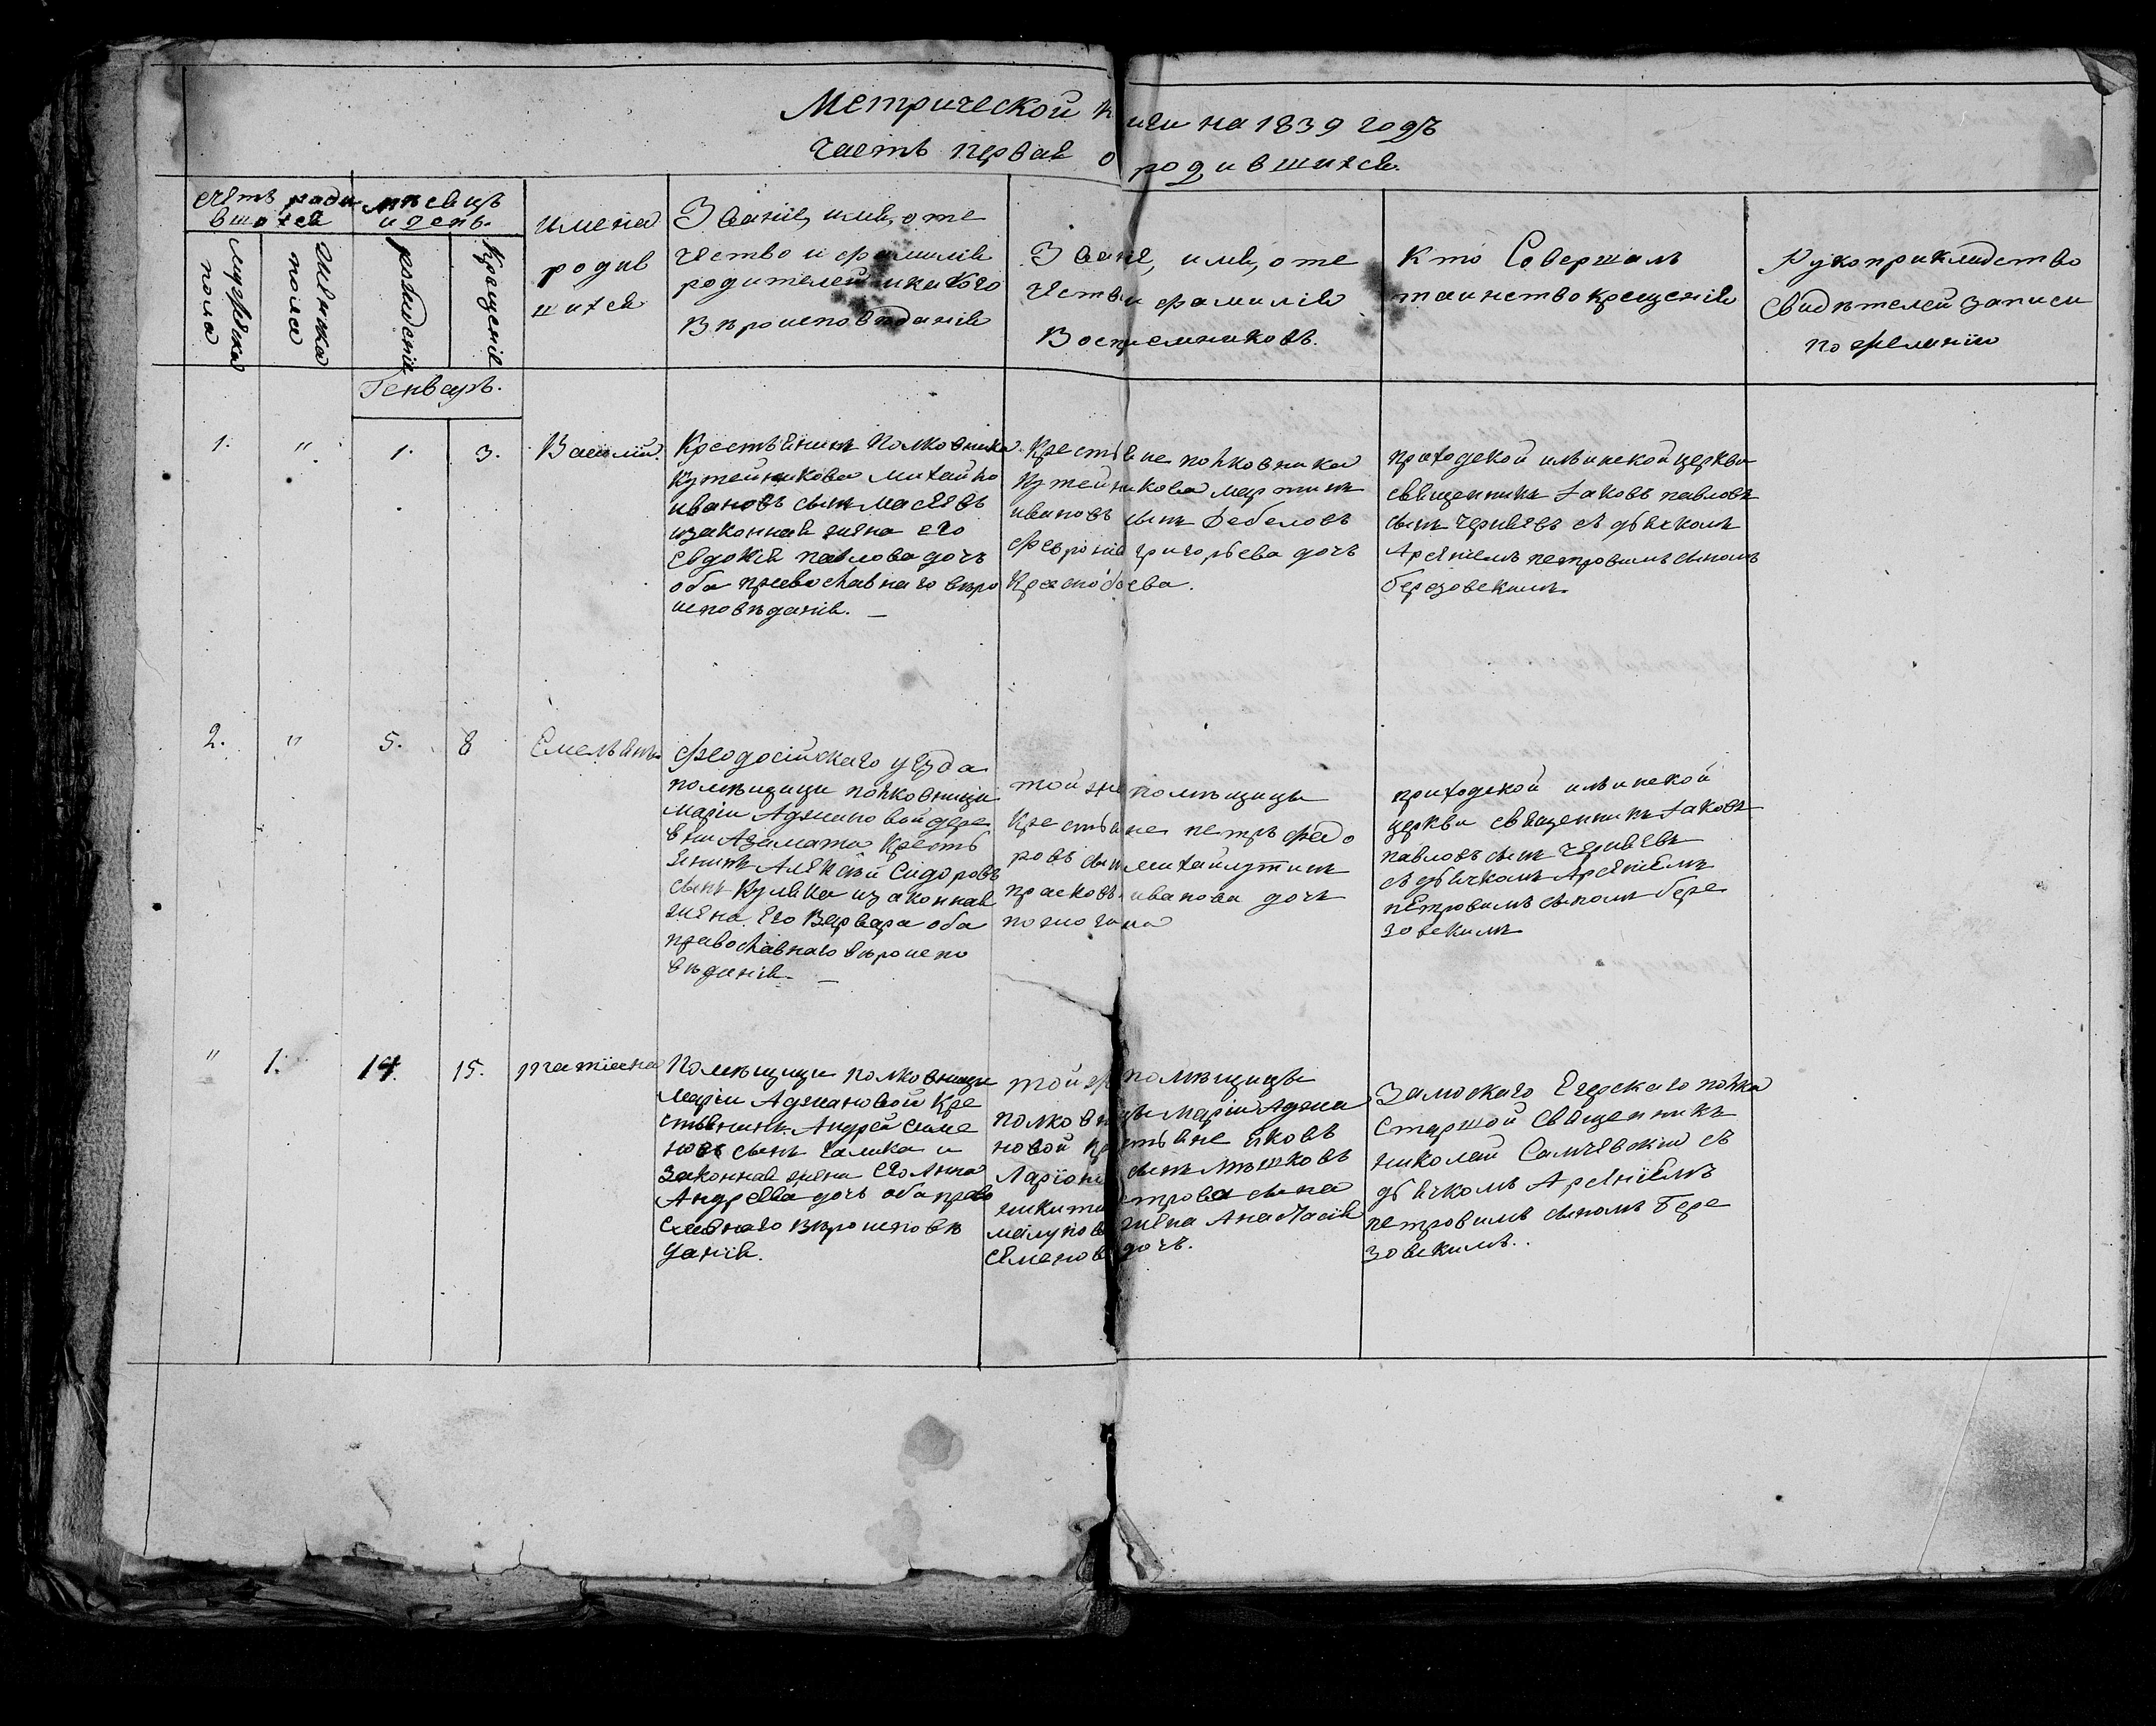 Метрической книги на 1839 годъ
Часть первая о родившихся.
счетъ роди
вшихся
мѣсяцъ
и день.
мужеска
пола
женска
пола
рожденія
крещенія
имена
родив
шихся
Званіе, имя, оте
чество и фамилія
родителей и какого
вѣроисповѣданія
Званіе, имя, оте
чество и фамилія
Воспріемниковъ.
Кто Совершалъ
таинство крещенія
Рукоприкладство
свидѣтелей записи
по желанію
Генварь.
1. " 1. 3. Василій.
Крестьянинъ Полковника
Кутейникова Михайло
ивановъ сынъ
изаконная жена его
Евдокія павлова дочь
оба православнаго вѣро
исповѣданія. —
Крестьяне полковника
Кутейникова мартинъ
ивановъ сынъ Дебеловъ
Феврѡнія григорьева дочь
приходской ильинской церкви
священникъ Іаковъ павловъ
сынъ Чернявъ съ дьячкомъ
Арсеніемъ петровымъ сыномъ
березовскимъ.
2. " 5. 8 Емельянъ.
Феодосійскаго уѣзда
помѣщицы полковницы
Маріи Аджиановой дере
вни Азамата Кресть
янинъ Алексѣй Сидоровъ
сынъ Кулька изаконная
жена Его Варвара оба
православнаго вѣроиспо
вѣданія. —
той же помѣщицы
Крестьяне петръ Федо
ровъ сынъ
прасковья иванова дочь
приходской ильинской
церкви священникъ Іаковъ
павловъ сынъ Чернявъ
съ дьячкомъ Арсеніемъ
петровымъ сыномъ бере
зовскимъ
" 1. 14. 15. татіана
Помѣщицы полковницы
Маріи Аджиановой Кре
стьянинъ Андрей Симе
новъ сынъ Галика и
законная жена Его Анна
Андреева дочь оба право
славнаго вѣроисповѣ
данія.
той же помѣщицы
полковницы Маріи Аджиа
новой крестьяне яковъ
сынъ
петрова сына
жена Анастасія
Семенова дочь.
Замоскаго Егерскаго полка
Старшой Священникъ
николай съ
дьячкомъ Арсеніемъ
петровымъ сыномъ Бере
зовскимъ.